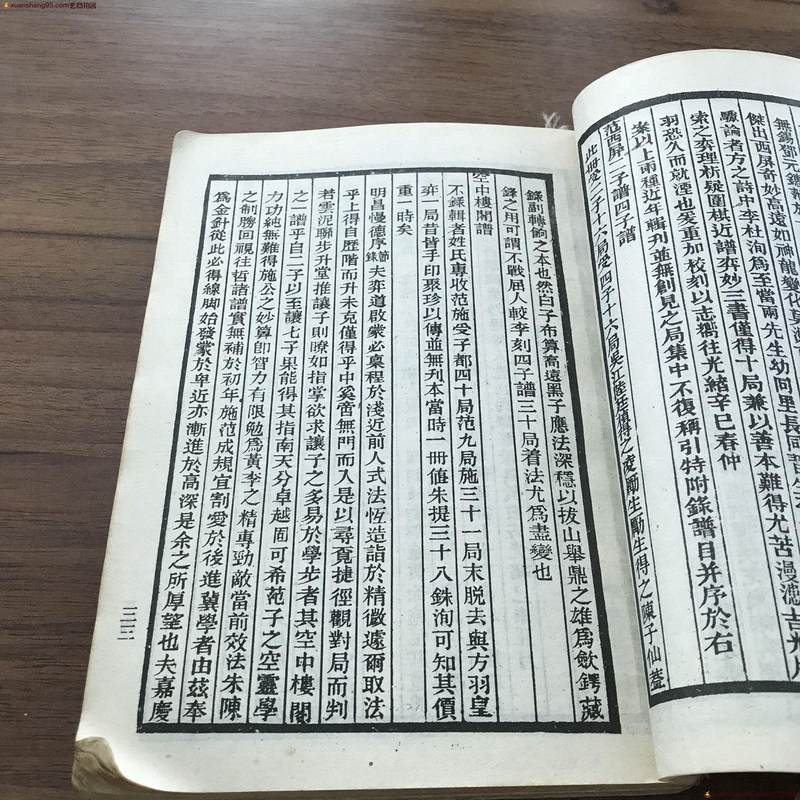 xuanshang95.com艺商书店
無錫鄧元鏸
傑出西屏奇妙高遠如神龍變化莫
驟論者方之詩中李杜洵為至當兩先生幼同里長同
索之弈理析疑圍棋近譜弈妙三書僅得十局兼以善本難得尤苦漫漶吉光片
羽恐久而就湮也爰重加校刻以志嚮往光緒辛巳春仲
案以上兩種近年輯刊並無創見之局集中不復稱引特附錄譜目并序於右
范西屏二子譜四子譜
此冊受二子十六局受四子十六局吳江陸廷禎得之凌勵生勵生得之陳子仙蓋
錄副轉餉之本也然白子布算高遠黑子應法深穩以拔山舉鼎之雄為斂鍔藏
鋒之用可謂不戰屈人較李刻四子譜三十局着法尤為盡變也
空中樓閣譜
不錄輯者姓氏專收范施受子都四十局范九局施三十一局末脫去與方羽皇
弈一局昔皆手印聚珍以傳並無刊本當時一冊値朱提三十八銖洵可知其價
重一時矣
明昌慢德序節錄夫弈道啟蒙必稟程於淺近前人式法恆造詣於精微遽爾取法
乎上得自歷階而升未克僅得乎中奚啻無門而入是以尋覓捷徑觀對局而判
若雲泥聯步升堂推讓子則瞭如指掌欲求讓子之多易於學步者其空中樓閣
之一譜乎自二子以至讓七子果能得其指南天分卓越固可希范子之空靈學
力功純無難得施公之妙算卽智力有限勉為黃李之精專勁敵當前效法朱陳
之制勝回視往哲諸譜實無補於初年施范成規宜割愛於後進冀學者由茲奉
為金針從此必得線脚始發蒙於卑近亦漸進於高深是余之所厚望也夫嘉慶
二三
xuanshang95.com艺商书店